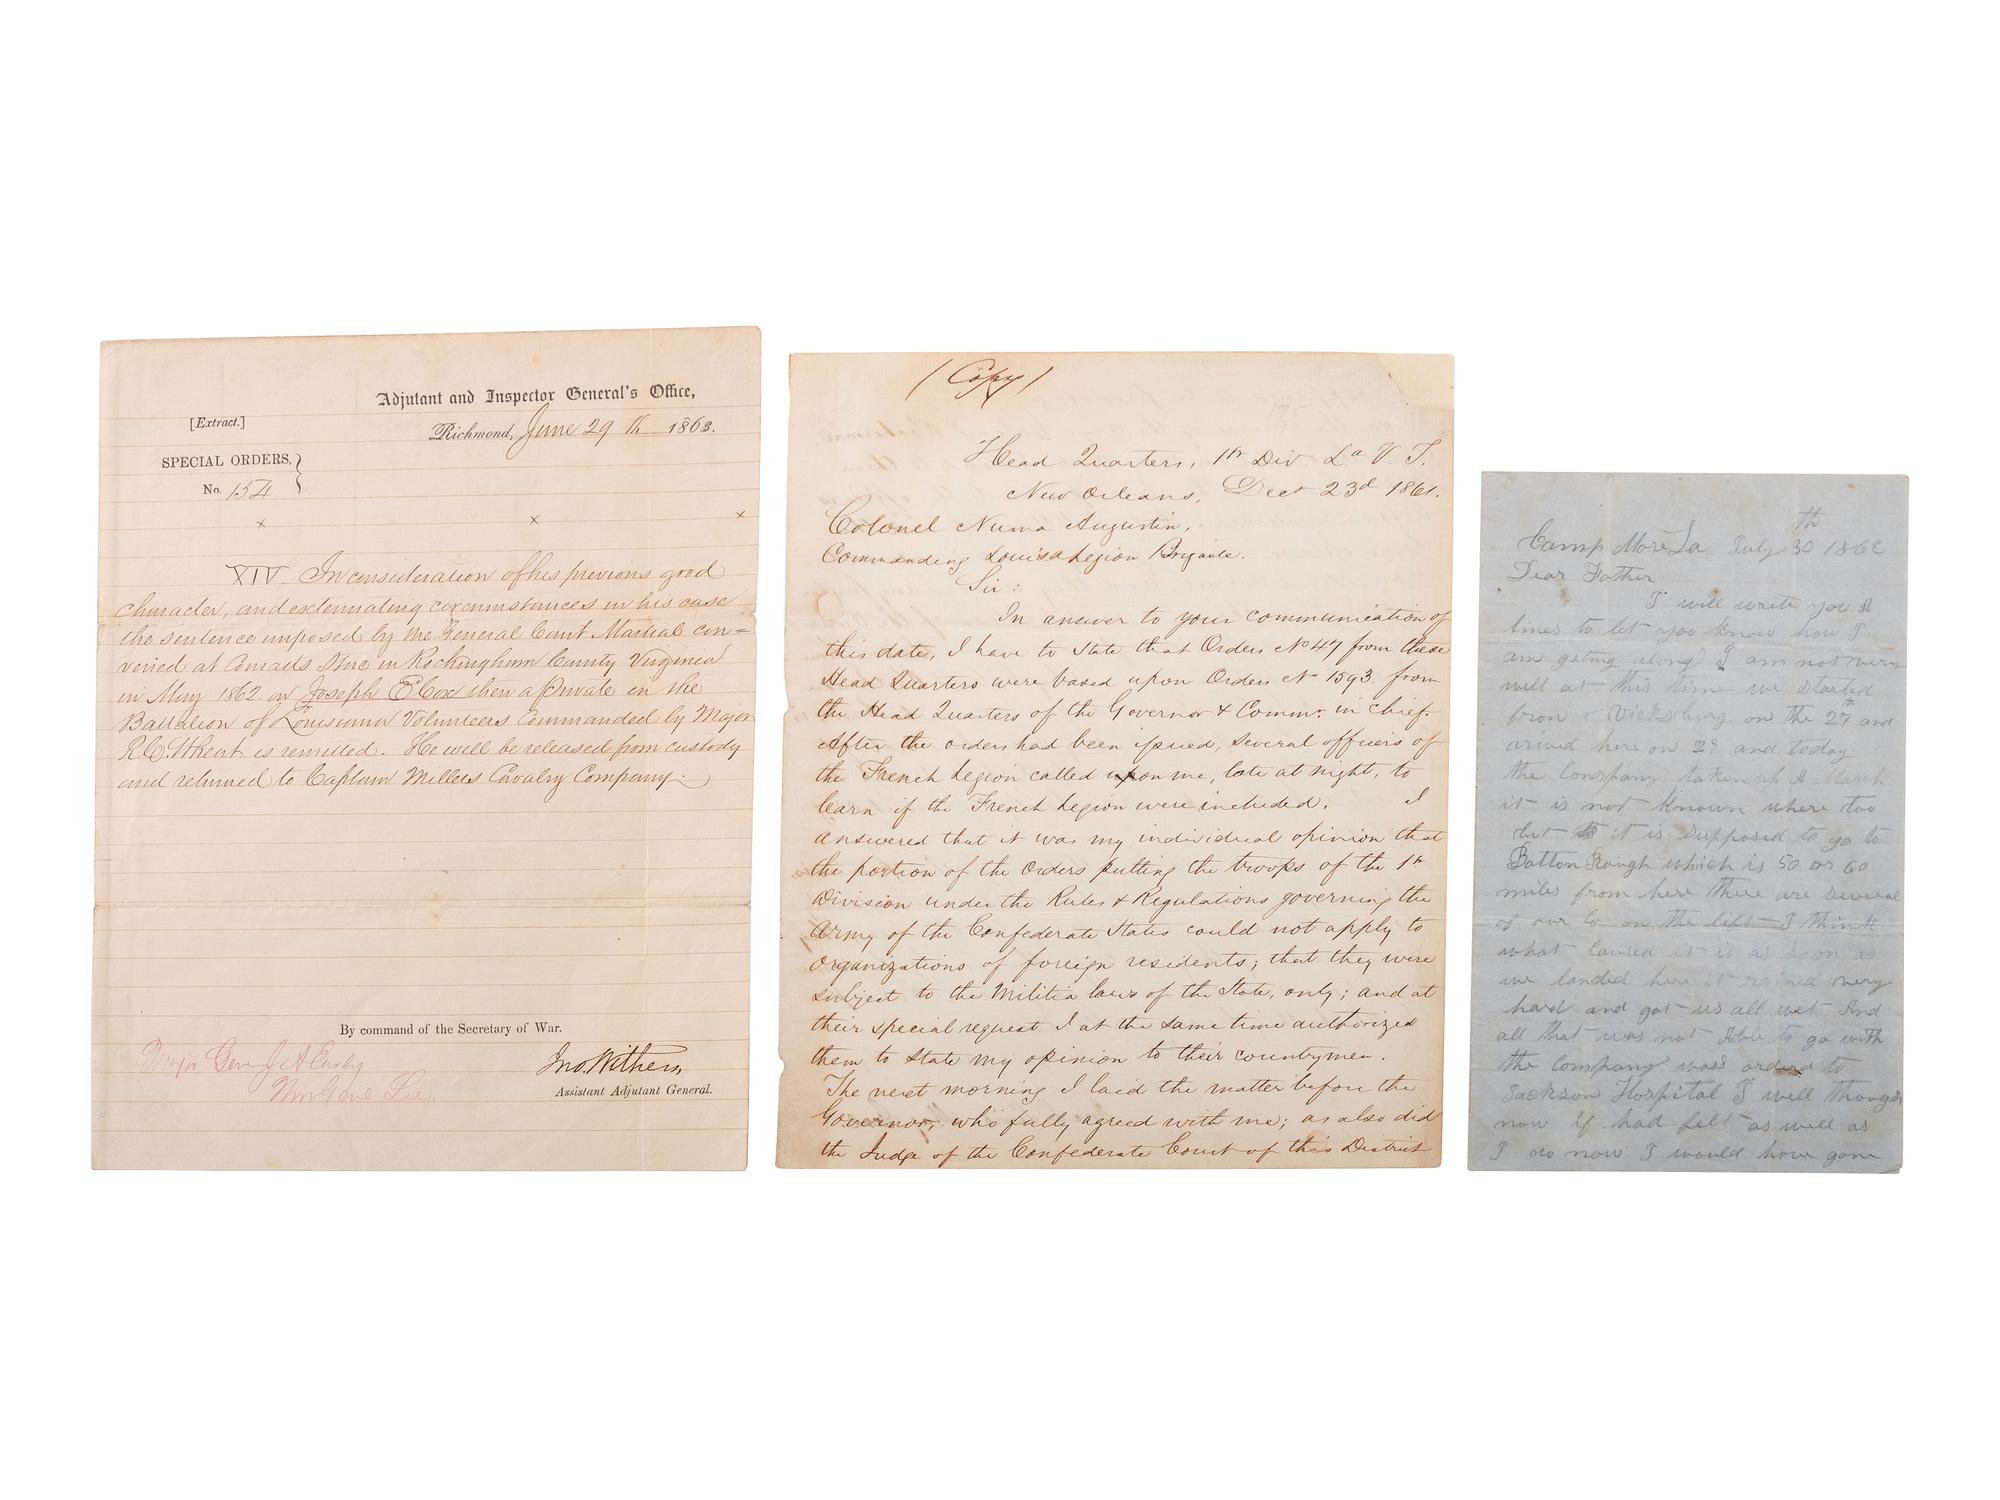 Adjutant and Inspector General's Office,
[Extract.]
Richmond, June 29th 1863.
SPECIAL ORDERS, }
No. 154
x x x
XIV. In consideration of his previous good
character, and extenuating circumstances in his case
the sentence imposed by the General Court Martial con=
vened at Conrads Store in Rockingham County Virginia
in May 1862 on Joseph E Cox then a private in the
Battalion of Louisiana Volunteers Commanded by Major
R C Wheat is remitted. He will be released from custody
and returned to Captain Millers Cavalry Company.
By command of the Secretary of War.
Jno. Withers
Assistant Adjutant General.
Major Gen J A Early
Genl Lee
(Copy)
Head Quarters, 1st Div. La V. T.
New Orleans, Decr 23d 1861.
Colonel Numa Augustin,
Commanding Louisa Legion Brigade.
Sir:
In answer to your communication of
this date, I have to state that Orders No 47 from these
Head Quarters were based upon Orders No 1593. from
the Head Quarters of the Governor & Commr. in Chief.
After the orders had been issued, several officers of
the French Legion called upon me, late at night, to
learn if the French Legion were included. I
answered that it was my individual opinion that
the portion of the Orders putting the troops of the 1st
Division under the Rules & Regulations governing the
Army of the Confederate States could not apply to
organizations of foreign residents; that they were
subject to the Militia laws of the State, only; and at
their special request I at the same time authorized
them to state my opinion to their countrymen.
The next morning I laid the matter before the
Governor, who fully agreed with me; as also did
the Judge of the Confederate Court of this District
Camp More La July 30th 1862
Dear Father
I will write you a
lines to let you know how I
am geting along I am not very
well at this time we started
from Vicksburg on the 27th and
arived here on 29 and today
the Company taken up a March
it is not known where too
but it is supposed to go to
Batton Rough which is 50 or 60
miles from here there are several
of our Co on the list I think
what caused it is as soon as
we landed here it rained very
hard and got us all wet And
all that was not Able to go with
the company was orderd to
Jackson Hospital I will though
now if had felt as well as
I do now I would have gone